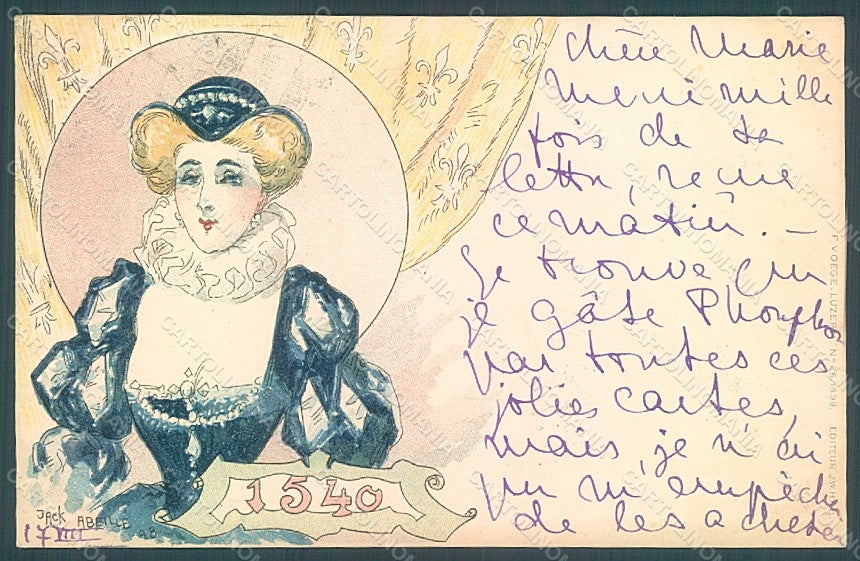 chère Marie
Merci mille
fois de ta
lettre, reçue
ce matin. –
Je trouve que
je gâte
par toutes ces
jolies cartes,
mais je n'ai
pu m'empêcher
de les acheter
1540
JACK ABEILLE
98
17 VIII
F. VOEGE. LUZERN. No 26. 1899. EDITEUR
CARTOLINOMANIA